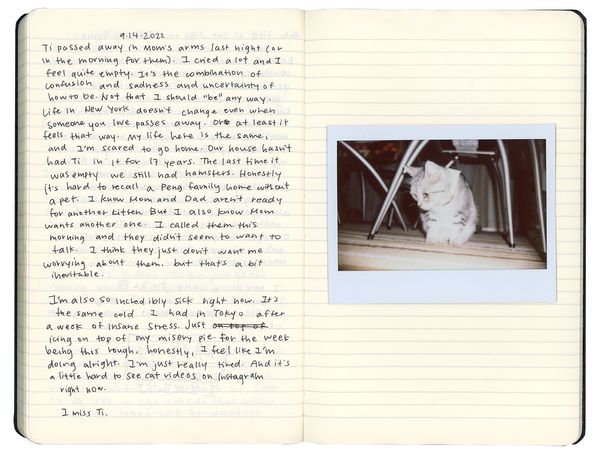 9.14.2022
Ti passed away in Mom's arms last night (or
in the morning for them). I cried a lot and I
feel quite empty. It's the combination of
confusion and sadness and uncertainty of
how to be. Not that I should "be" any way.
Life in New York doesn't change even when
someone you love passes away. Or at least it
feels that way. My life here is the same,
and I'm scared to go home. Our house hasn't
had Ti in it for 17 years. The last time it
was empty we still had hamsters. Honestly
it's hard to recall a Peng family home without
a pet. I know Mom and Dad aren't ready
for another kitten. But I also know Mom
wants another one. I called them this
morning and they didn't seem to want to
talk. I think they just don't want me
worrying about them. but that's a bit
inevitable.
I'm also so incredibly sick right now. It's
the same cold I had in Tokyo after
a week of insane stress. Just on top of
icing on top of my misery pie. for the week
being this rough, honestly, I feel like I'm
doing alright. I'm just really tired. And it's
a little hard to see cat videos on Instagram
right now.
I miss Ti.